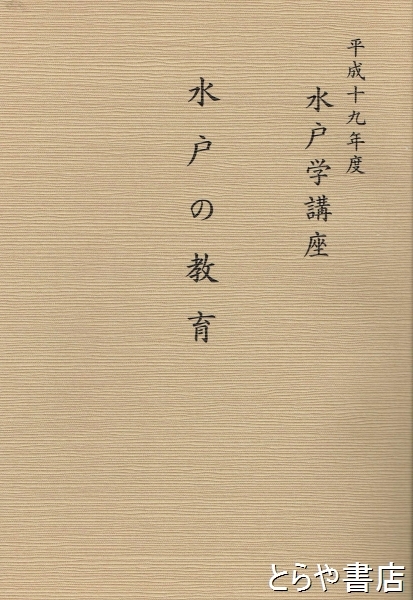 平成十九年度
水戸学講座
水戸の教育
とらや書店